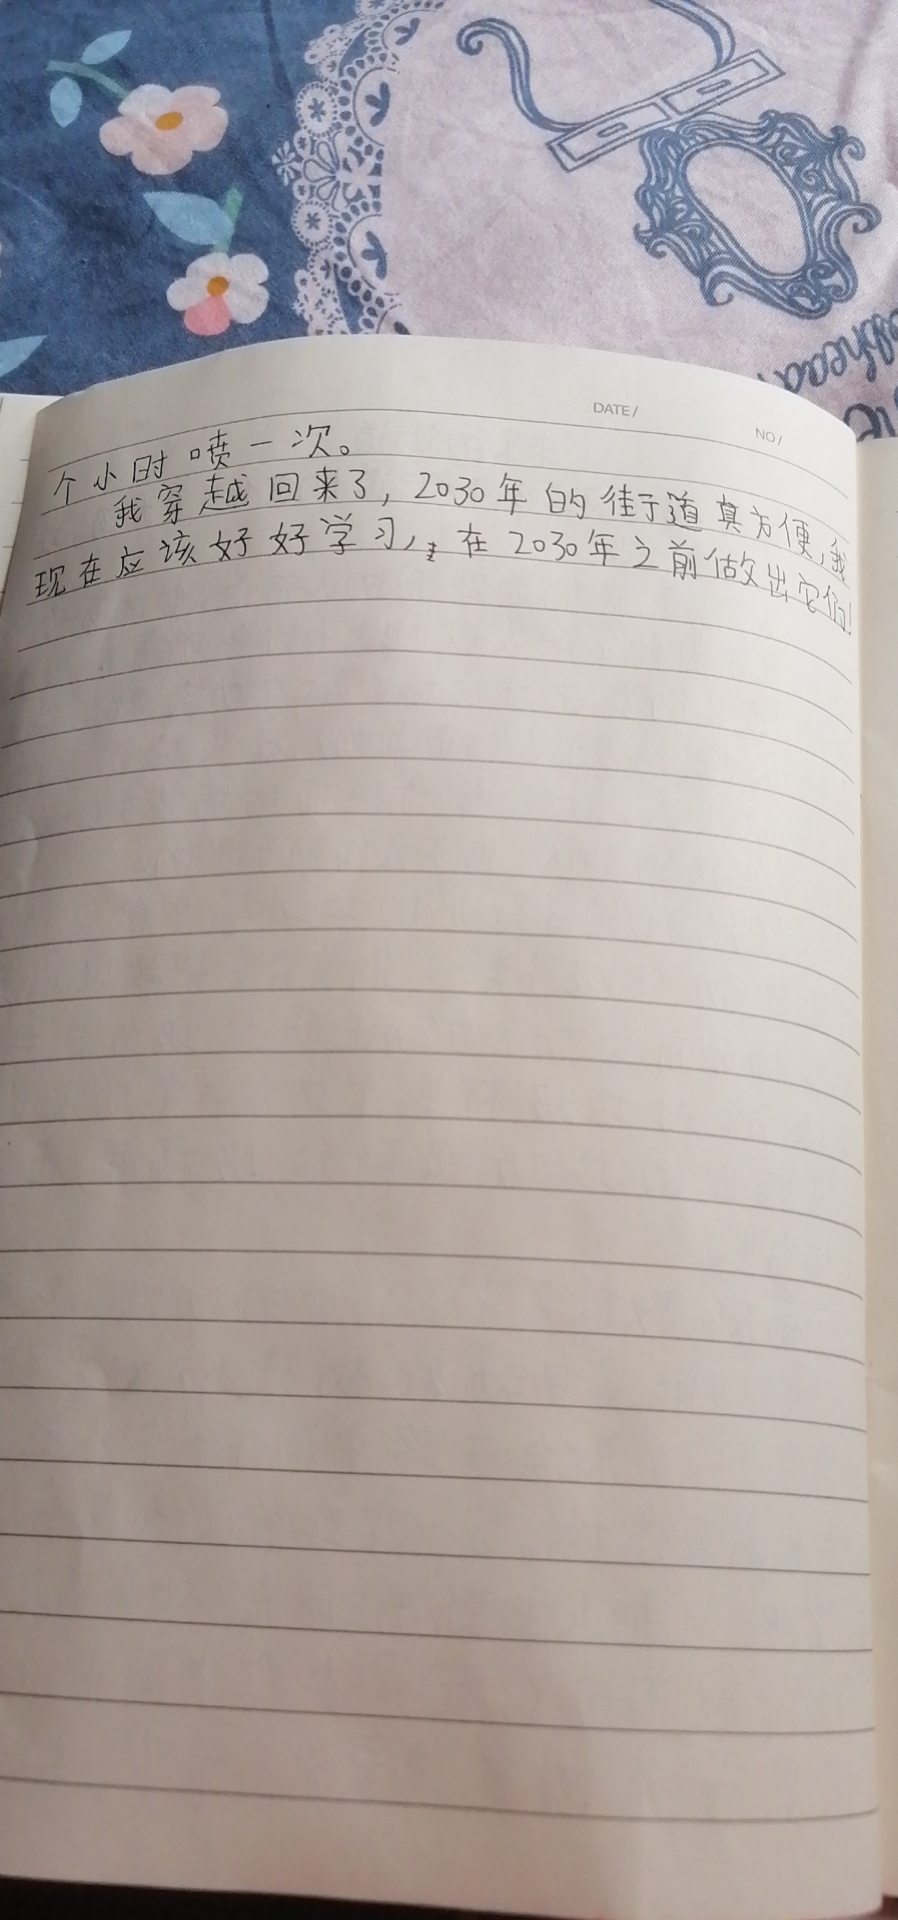 DATE/
NO/
个小时喷一次。
我穿越回来了，2030年的街道真方便，我
现在应该好好学习，在2030年之前做出它们!